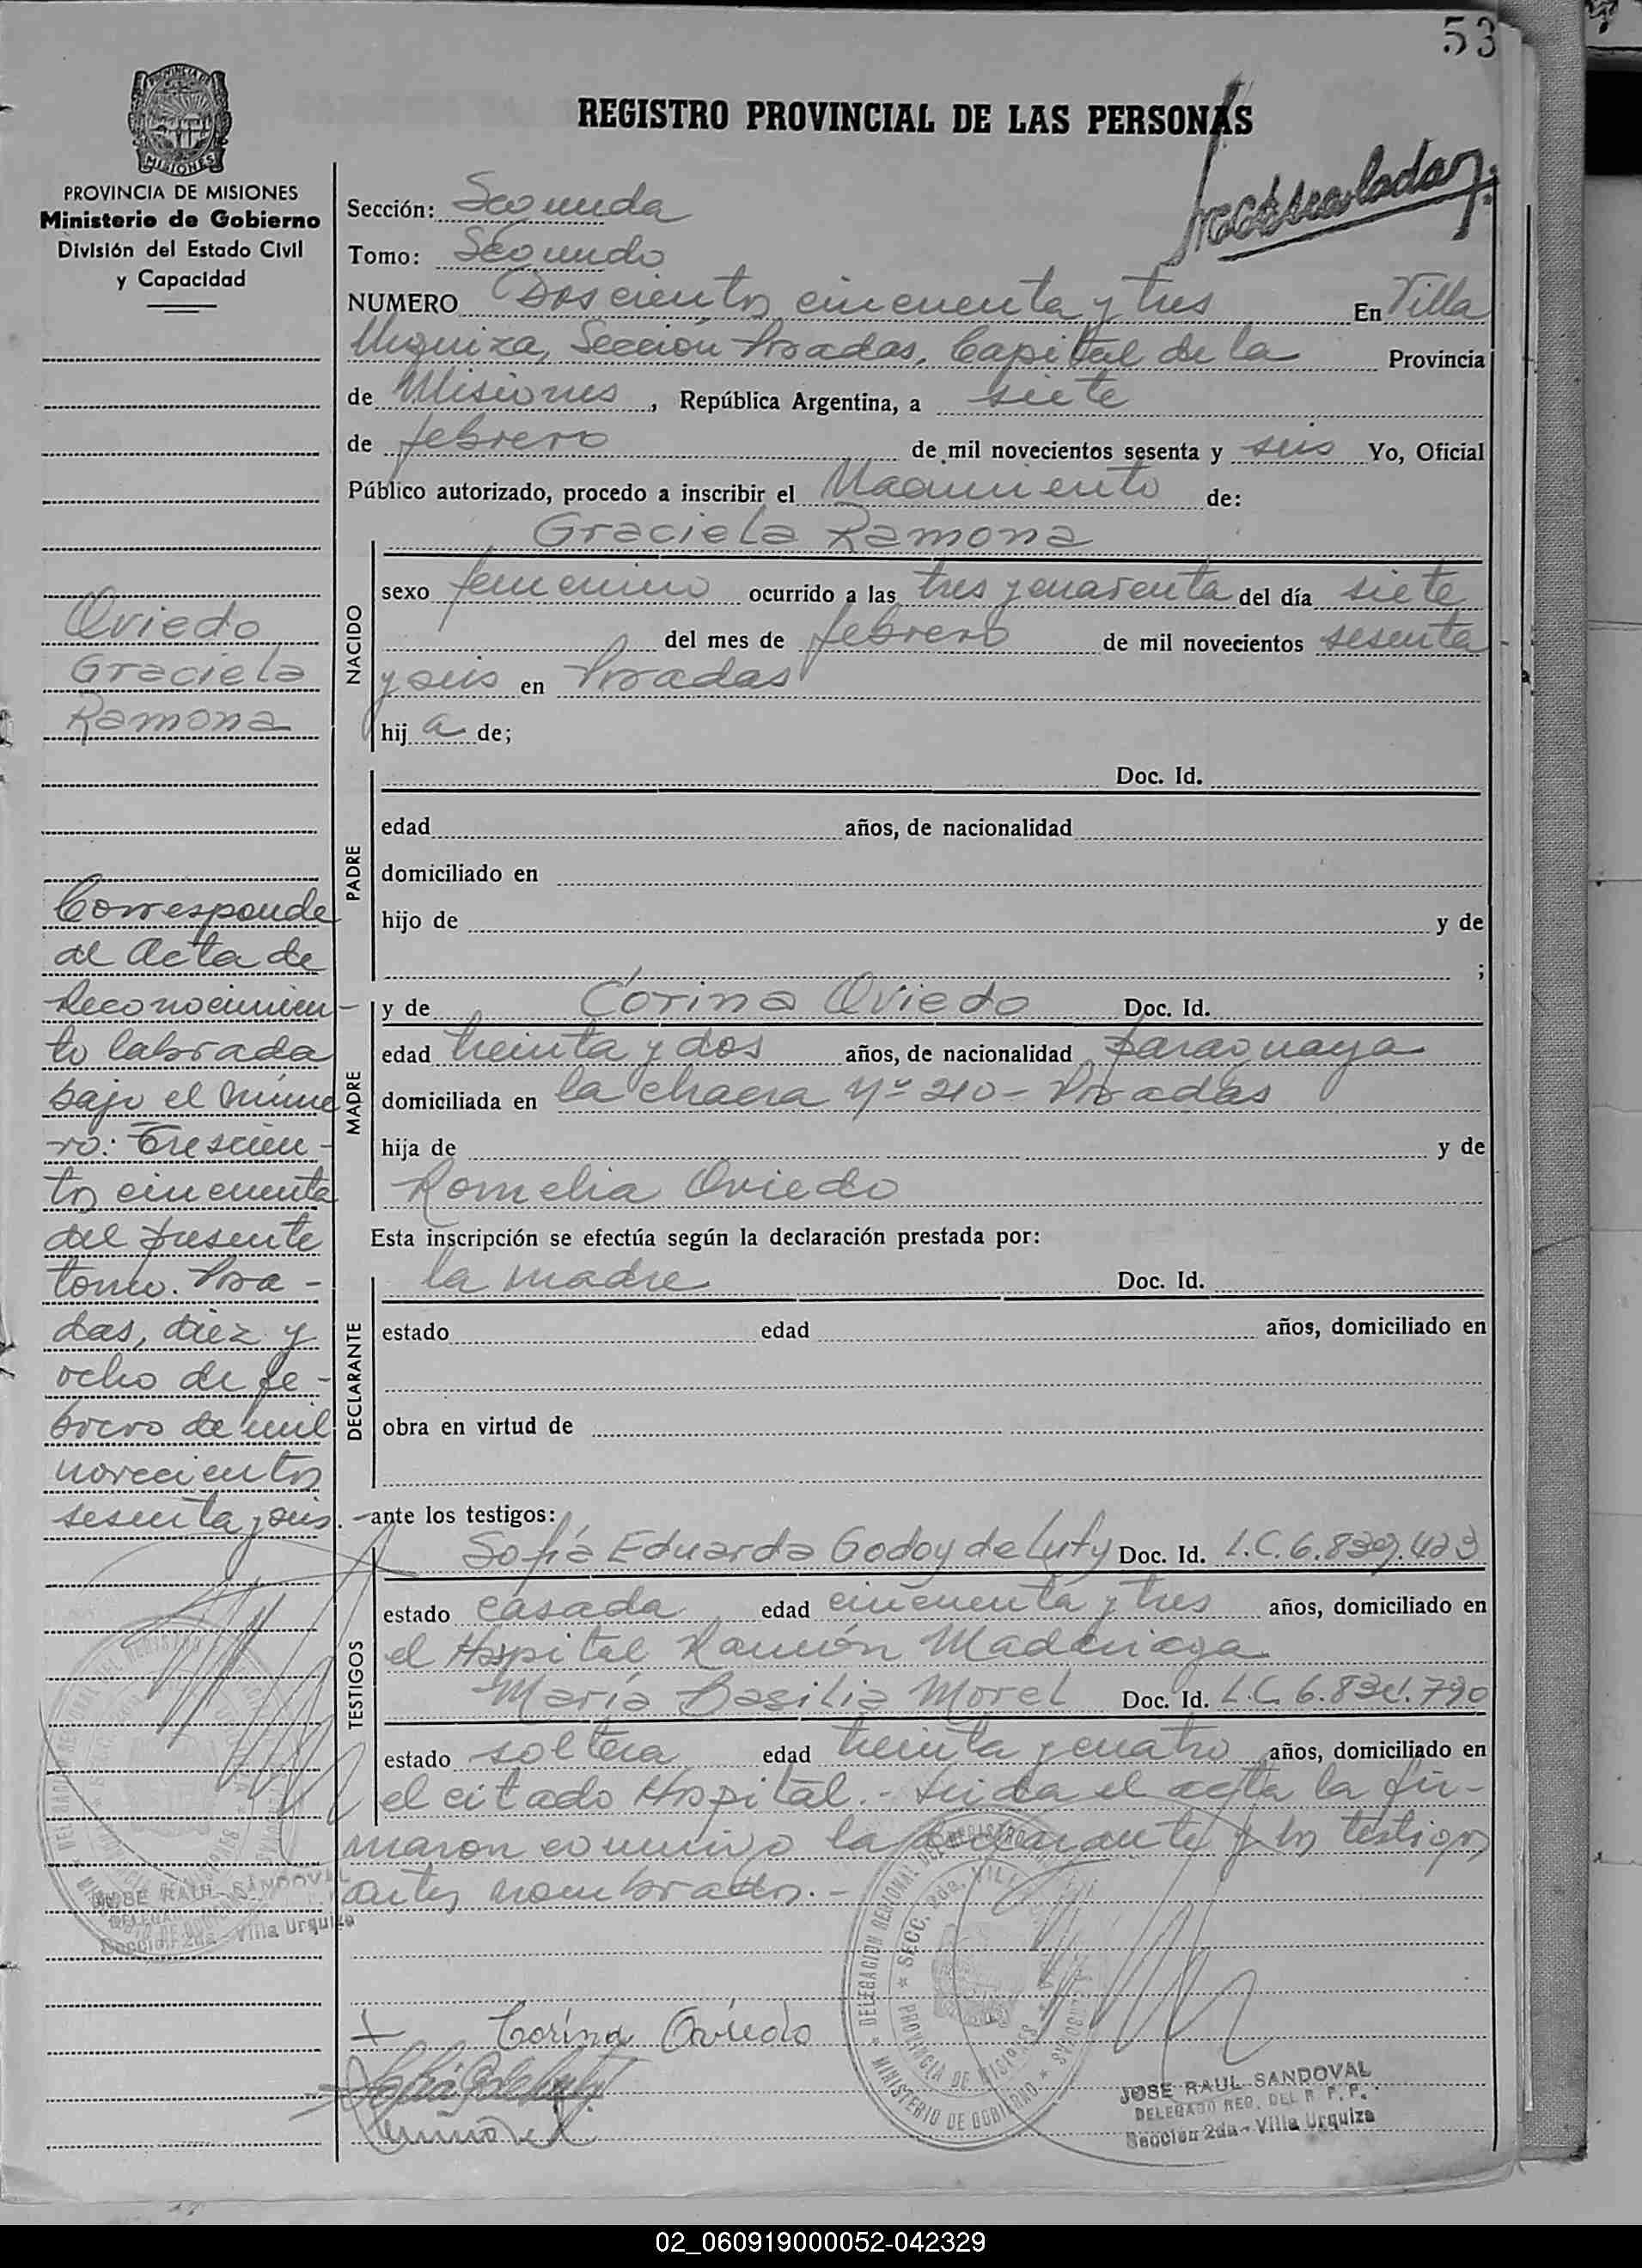 53
REGISTRO PROVINCIAL DE LAS PERSONAS
MISIONES
PROVINCIA DE MISIONES
Ministerio de Gobierno
División del Estado Civil
y Capacidad
Sección: Segunda
Tomo: Segundo
NUMERO Doscientos cincuenta y tres En Villa
Urquiza, Sección Posadas, Capital de la Provincia
de Misiones, República Argentina, a siete
de febrero de mil novecientos sesenta y seis Yo, Oficial
Público autorizado, procedo a inscribir el Nacimiento de:
Graciela Ramona
NACIDO
sexo femenino ocurrido a las tres y cuarenta del día siete
del mes de febrero de mil novecientos sesenta
y seis en Posadas
hij a de;
Oviedo
Graciela
Ramona
PADRE
Doc. Id.
edad años, de nacionalidad
domiciliado en
hijo de y de
;
MADRE
y de Corina Oviedo Doc. Id.
edad treinta y dos años, de nacionalidad paraguaya
domiciliada en la chacra Nº 210 - Posadas
hija de y de
Romelia Oviedo
Esta inscripción se efectúa según la declaración prestada por:
DECLARANTE
la madre Doc. Id.
estado edad años, domiciliado en
obra en virtud de
Corresponde
al Acta de
Reconocimien-
to labrada
bajo el núme
ro: Trescien-
tos cincuenta
del presente
tomo. Posa-
das, diez y
ocho de fe-
brero de mil
novecientos
sesenta y seis.
ante los testigos:
TESTIGOS
Sofía Eduarda Godoy de Luty Doc. Id. L.C. 6.839.423
estado casada edad cincuenta y tres años, domiciliado en
el Hospital Ramón Madariaga
María Basilia Morel Doc. Id. L.C. 6.831.790
estado soltera edad treinta y cuatro años, domiciliado en
el citado Hospital.- Leida el acta la fir-
maron conmigo la declarante y los testigos
antes nombrados.-
JOSE RAUL SANDOVAL
Sección 2da - Villa Urquiza
Corina Oviedo
DELEGACION REGIONAL DEL REGISTRO
MINISTERIO DE GOBIERNO
SECC. 2da. VILLA
PROVINCIA DE MISIONES
JOSE RAUL SANDOVAL
DELEGADO REG. DEL R. P. P.
Sección 2da - Villa Urquiza
02_060919000052-042329